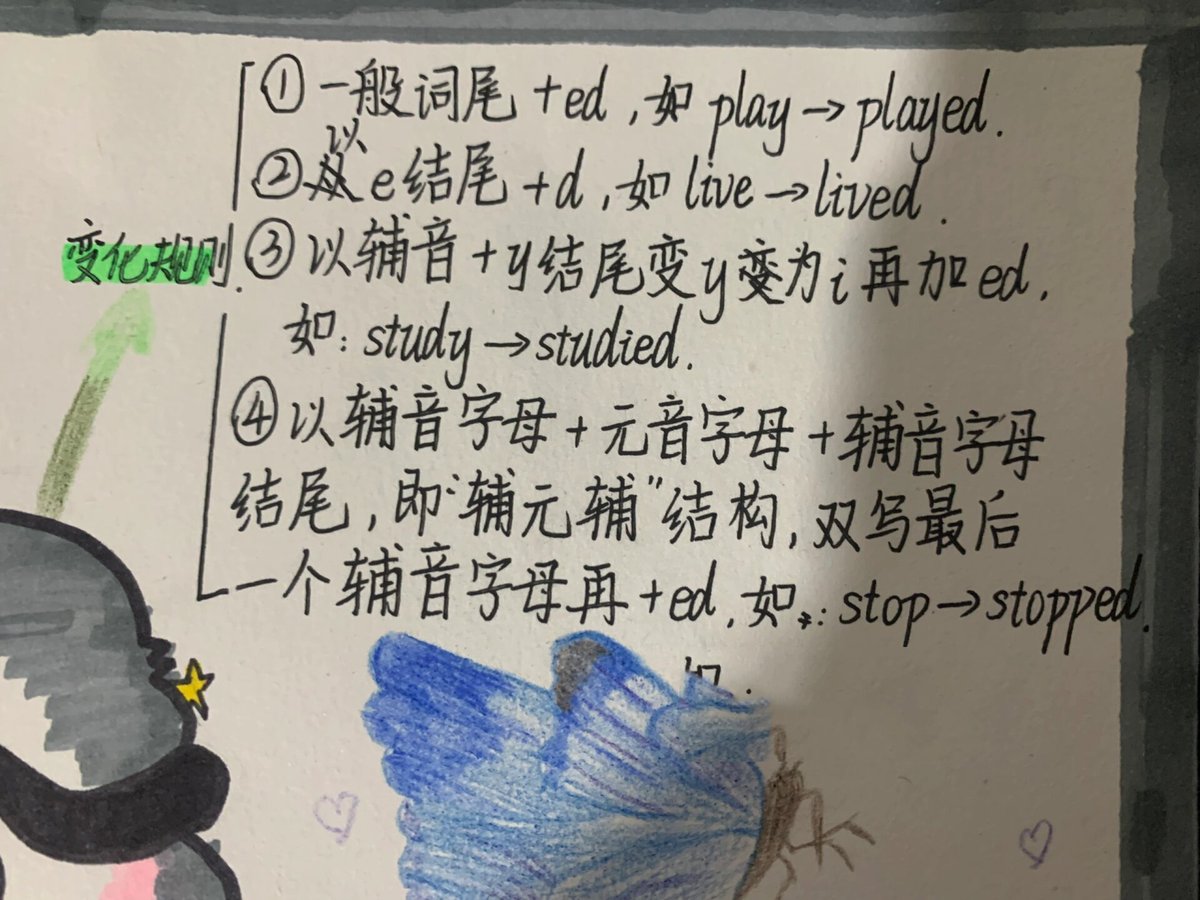 ①一般词尾+ed,如play→played.
②以e结尾+d,如live→lived.
变化规则.
③以辅音+y结尾变y变为i再加ed.
如:study→studied.
④以辅音字母+元音字母+辅音字母
结尾,即“辅元辅”结构,双写最后
一个辅音字母再+ed.如:stop→stopped.
如.